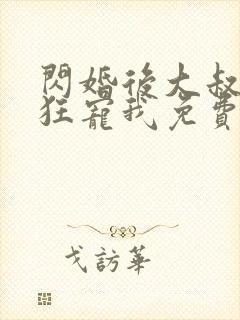 閃婚後大叔
狂寵我免費
戈訪華